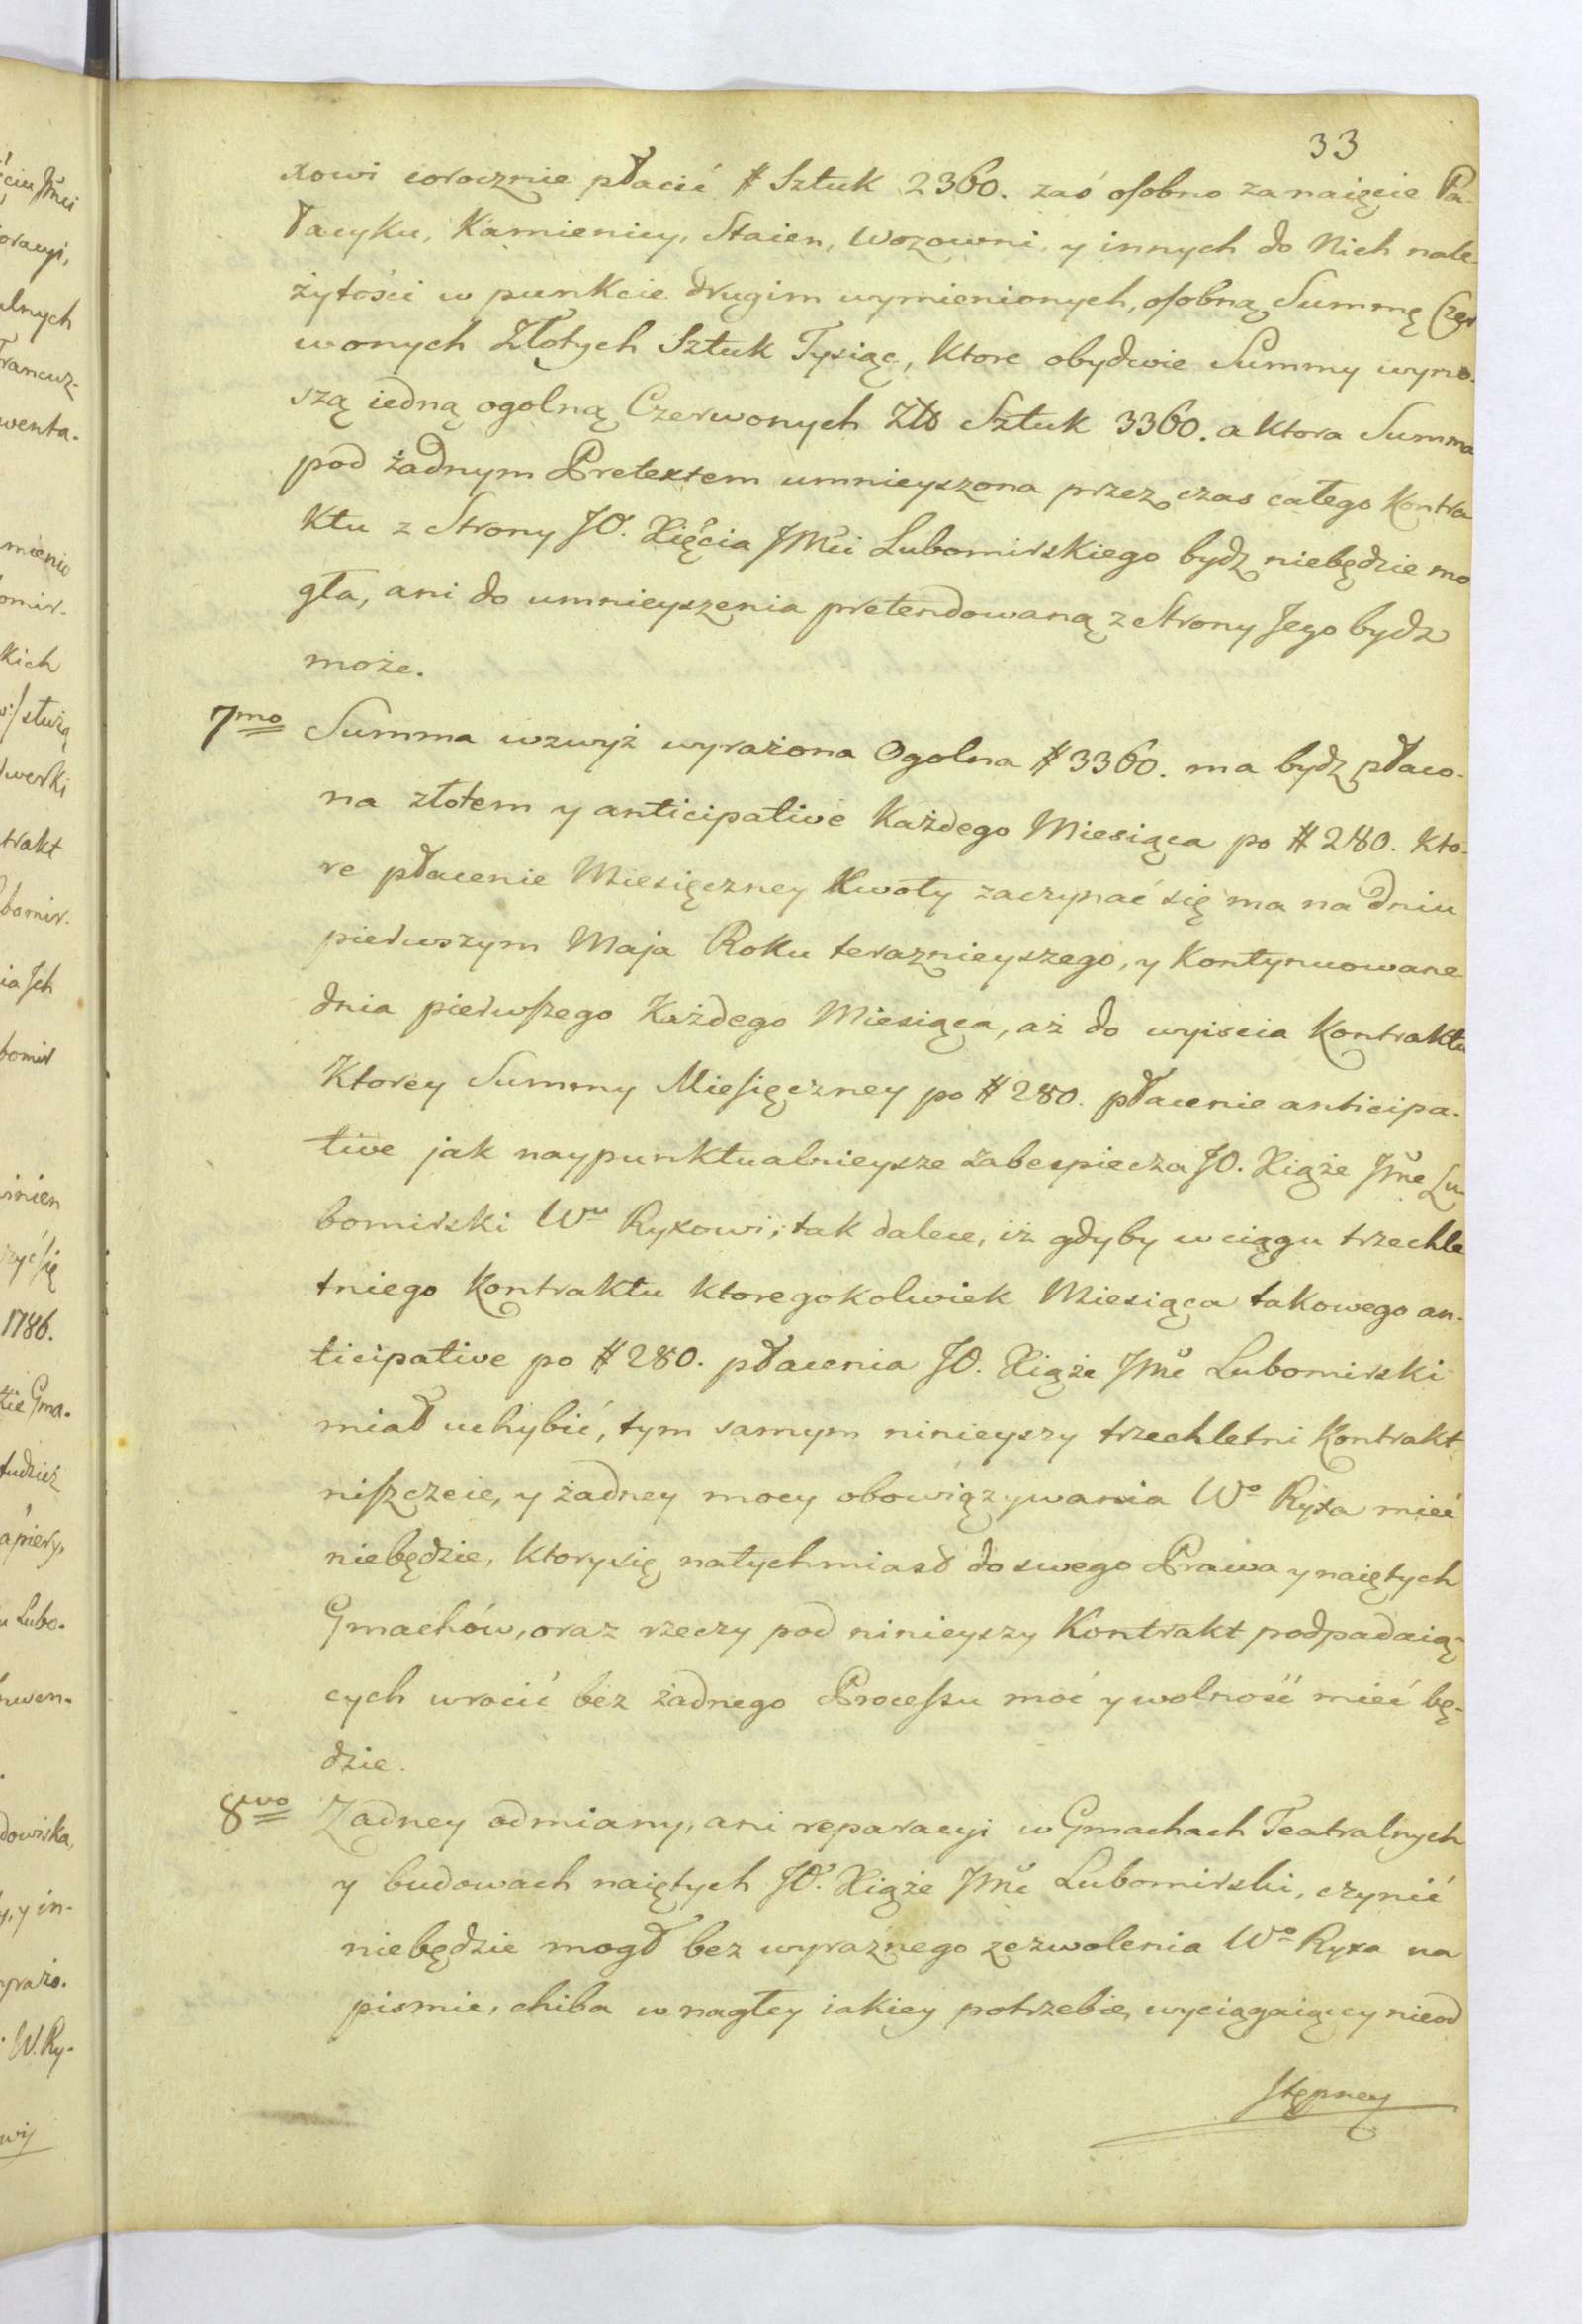 33
xowi corocznie płacić # Sztuk 2360. zaś osobno za naięcie Pa-
łacyku, Kamienicy, Staien, Wozowni y innych do Nich nale-
żytości w punkcie drugim wymienionych, osobną Summę Czer
wonych Złotych Sztuk Tysiąc, Ktore obydwie Summy wyno-
szą iedną ogolną Czerwonych Zło Sztuk 3360. a Ktora Summa
pod żadnym Pretextem umnieyszona przez czas całego Kontra
Ktu z Strony JO. Xięcia JMci Lubomirskiego bydz niebędzie mo
gła, ani do umnieyszenia pretendowaną z Strony Jego bydz
może.
7mo Summa wzwyż wyrażona Ogolna # 3360. ma bydz płaco-
na złotem y anticipative Każdego Miesiąca po # 280. Kto-
re płacenie Miesięczney Kwoty zaczynać się ma na dniu
pierwszym Maja Roku teraznieyszego, y Kontynuowane
dnia pierwszego Każdego Miesiąca, aż do wyiscia Kontraktu
Ktorey Summy Miesięczney po # 280. płacenie anticipa-
tive jak naypunktualnieysze zabespiecza JO. Xiąże Jmc Lu
bomirski Wu Ryxowi; tak dalece, iż gdyby w ciągu trzechle
tniego Kontraktu Ktoregokolwiek Miesiąca takowego an-
ticipative po # 280. płacenia JO. Xiąże Jmc Lubomirski
miał uchybić, tym samym ninieyszy trzechletni Kontrakt
niszczeie, y żadney mocy obowiązywania Wo Ryxa mieć
niebędzie, Ktory się natychmiast do swego Prawa y naiętych
Gmachów, oraz rzeczy pod ninieyszy Kontrakt podpadaią-
cych wrocić bez żadnego Processu moc y wolność mieć bę-
dzie.
8vo Zadney odmiany, ani reparacyi w Gmachach Teatralnych
y budowach naiętych JO. Xiąże Jmc Lubomirski, czynić
niebędzie mogł bez wyraznego zezwolenia Wo Ryxa na
pismie, chiba w nagłey iakiey potrzebie, wyciągaiącey nieod
stępney